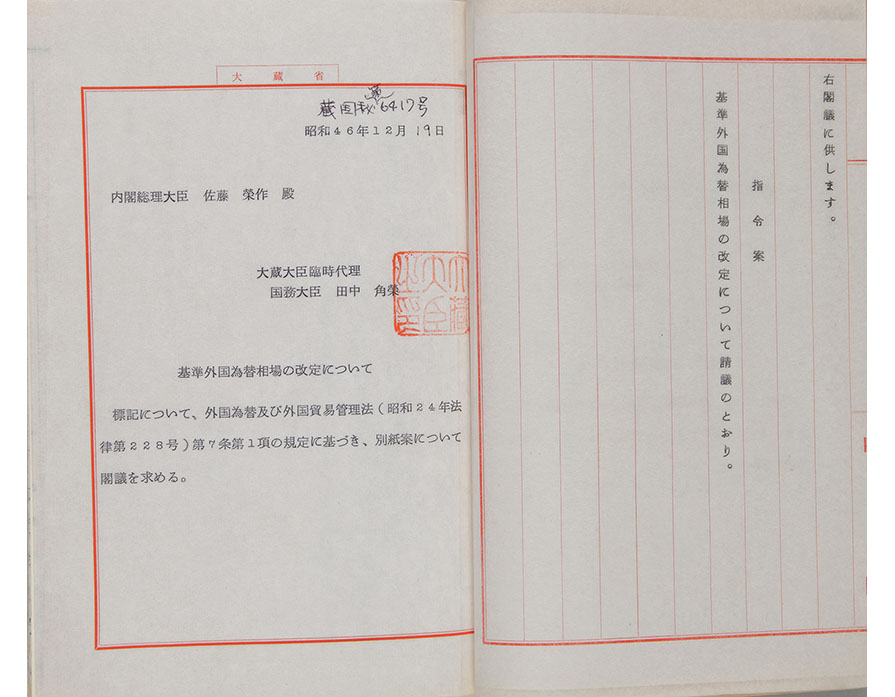 右閣議に供します。
指令案
基準外国為替相場の改定について請議のとおり。
大蔵省
蔵国秘 6417号
昭和46年12月19日
内閣総理大臣 佐藤 榮作 殿
大蔵大臣臨時代理
国務大臣 田中 角榮
大蔵大臣之印
基準外国為替相場の改定について
標記について、外国為替及び外国貿易管理法(昭和24年法
律第228号)第7条第1項の規定に基づき、別紙案について
閣議を求める。